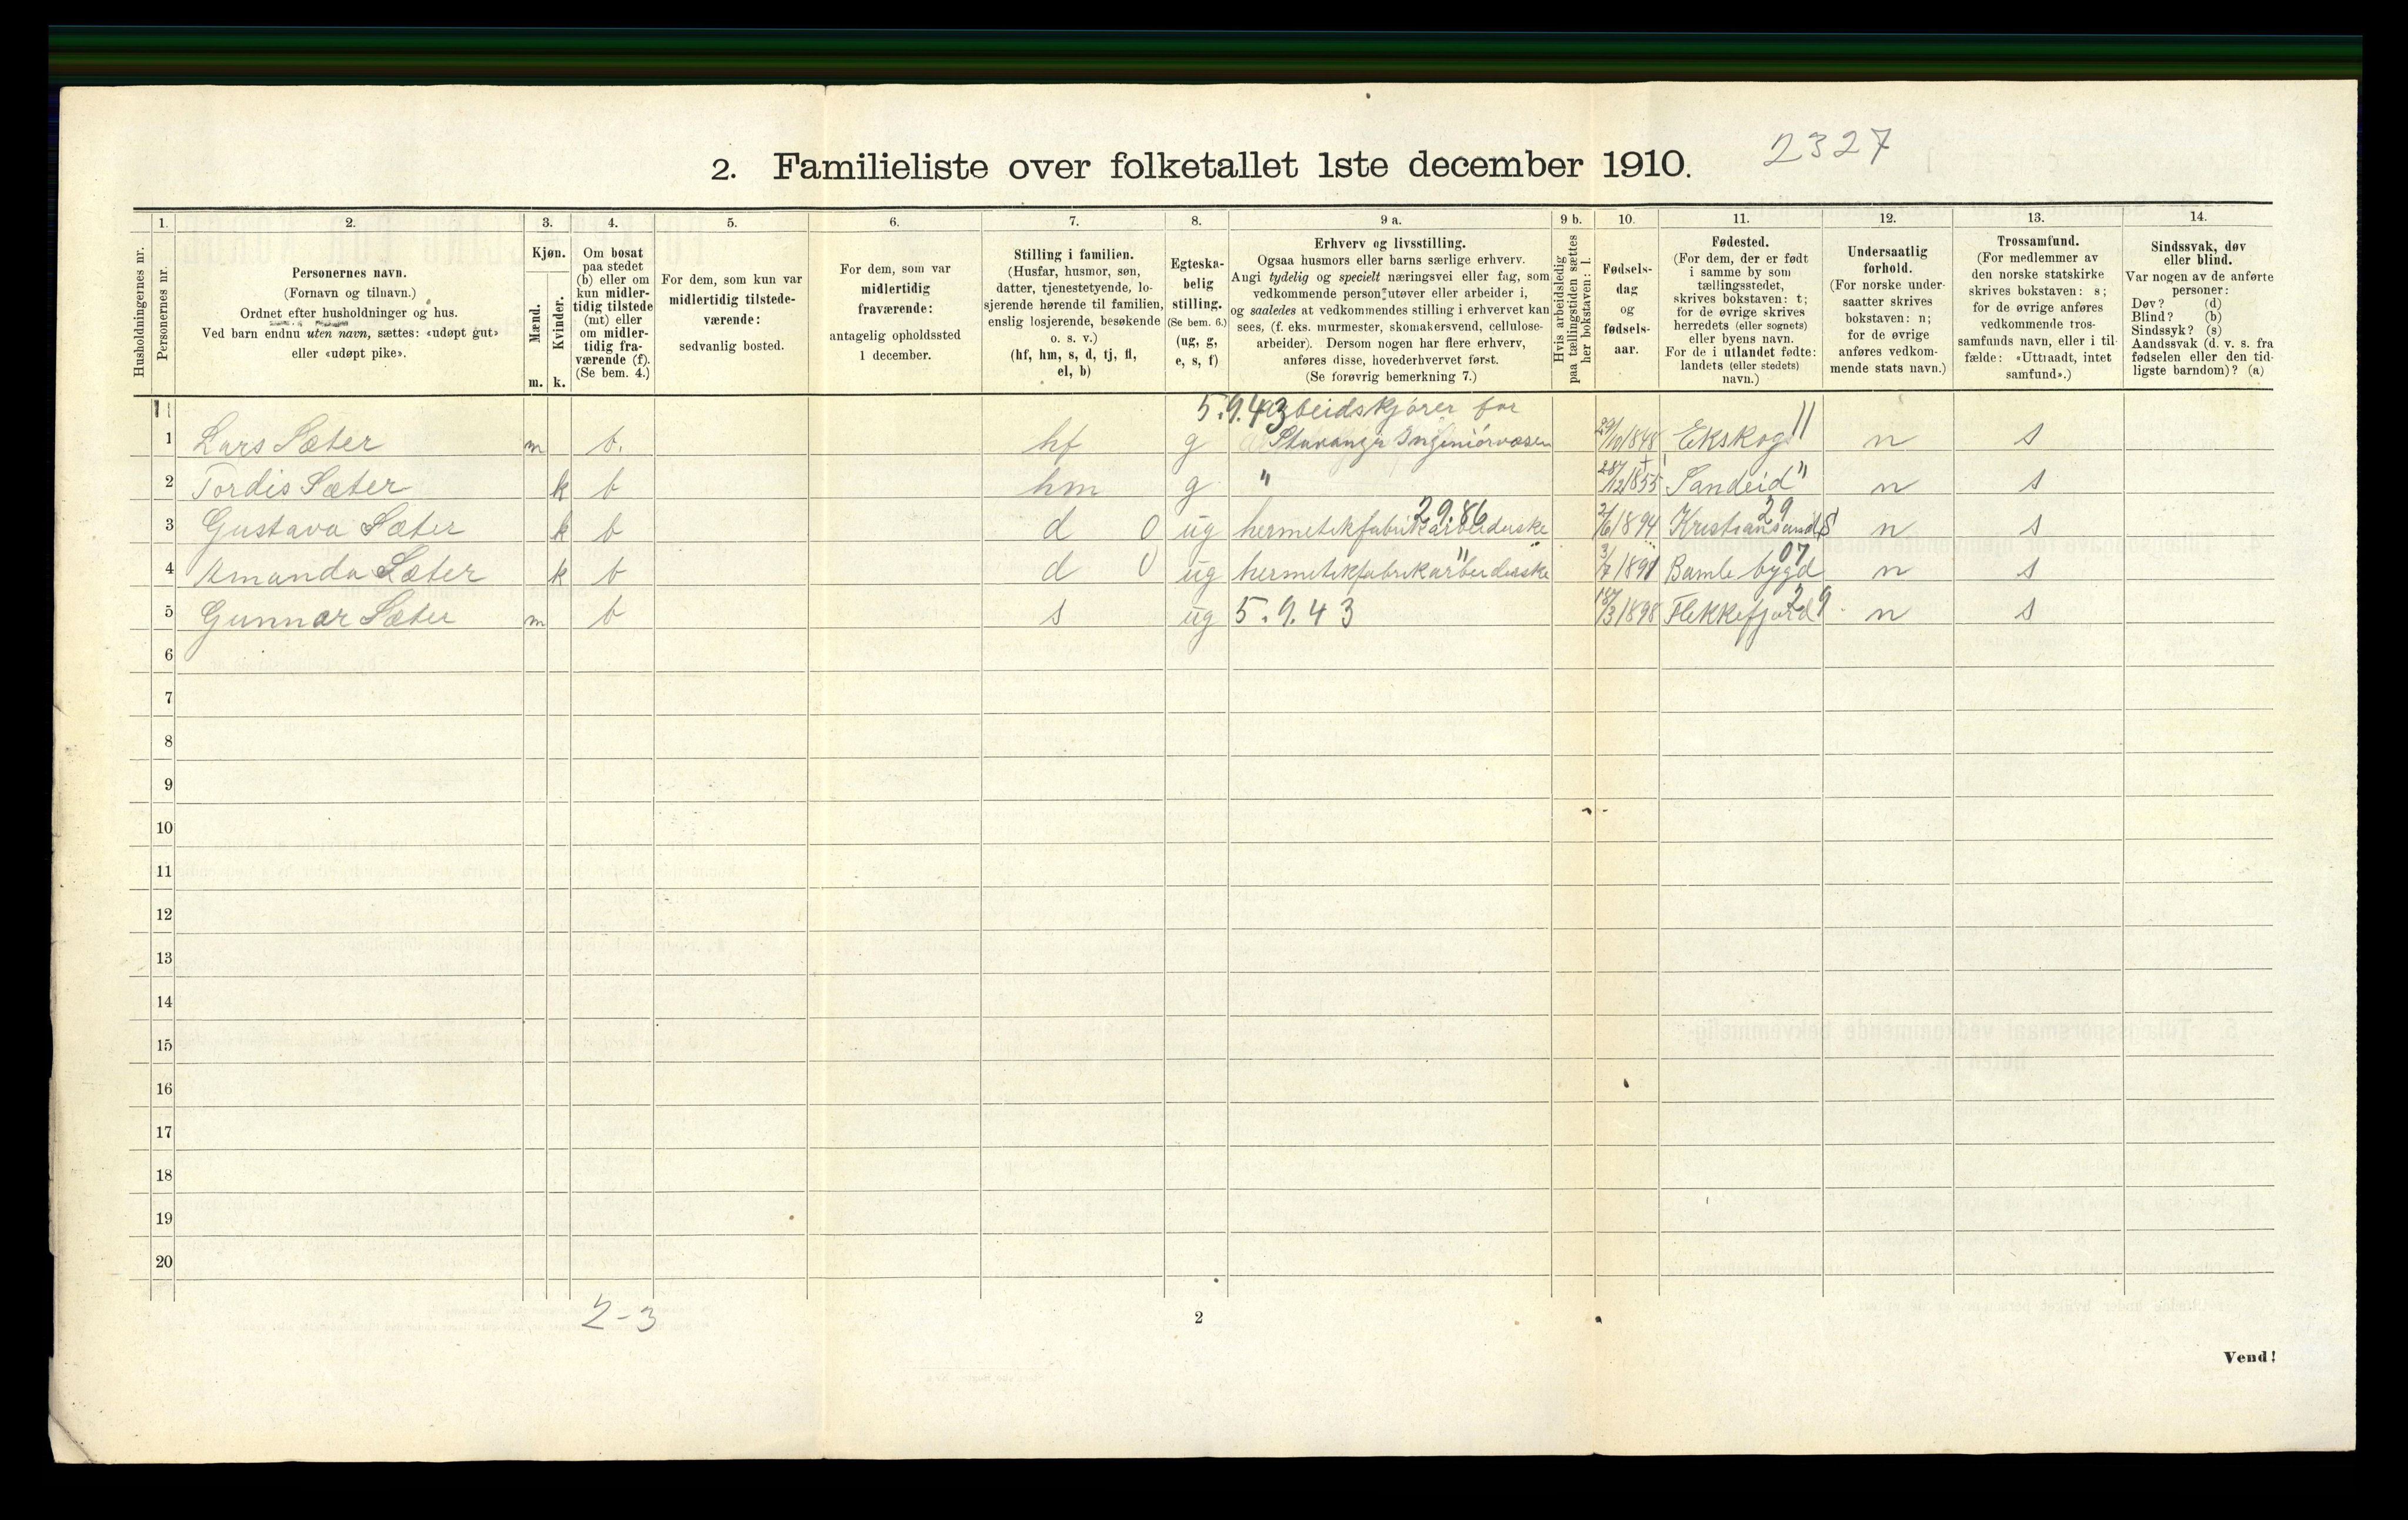 2327
2. Familieliste over folketallet 1ste december 1910.
1. 2. 3. 4. 5. 6. 7. 8. 9 a. 9 b. 10. 11. 12. 13. 14.
Husholdningernes nr.
Personernes nr.
Personernes navn.
(Fornavn og tilnavn.)
Ordnet efter husholdninger og hus.
Ved barn endnu uten navn, sættes: «udøpt gut»
eller «udøpt pike».
Kjøn.
Mænd.
Kvinder.
m. k.
Om bosat
paa stedet
(b) eller om
kun midler-
tidig tilstede
(mt) eller
om midler-
tidig fra-
værende (f).
(Se bem. 4.)
For dem, som kun var
midlertidig tilstede-
værende:
sedvanlig bosted.
For dem, som var
midlertidig
fraværende:
antagelig opholdssted
1 december.
Stilling i familien.
(Husfar, husmor, søn,
datter, tjenestetyende, lo-
sjerende hørende til familien,
enslig losjerende, besøkende
o. s. v.)
(hf, hm, s, d, tj, fl,
el, b)
Egteska-
belig
stilling.
(Se bem. 6.)
(ug, g,
e, s, f)
Erhverv og livsstilling.
Ogsaa husmors eller barns særlige erhverv.
Angi tydelig og specielt næringsvei eller fag, som
vedkommende person utøver eller arbeider i,
og saaledes at vedkommendes stilling i erhvervet kan
sees, (f. eks. murmester, skomakersvend, cellulose-
arbeider). Dersom nogen har flere erhverv,
anføres disse, hovederhvervet først.
(Se forøvrig bemerkning 7.)
Hvis arbeidsledig
paa tællingstiden sættes
her bokstaven: l.
Fødsels-
dag
og
fødsels-
aar.
Fødested.
(For dem, der er født
i samme by som
tællingsstedet,
skrives bokstaven: t;
for de øvrige skrives
herredets (eller sognets)
eller byens navn.
For de i utlandet fødte:
landets (eller stedets)
navn.)
Undersaatlig
forhold.
(For norske under-
saatter skrives
bokstaven: n;
for de øvrige
anføres vedkom-
mende stats navn.)
Trossamfund.
(For medlemmer av
den norske statskirke
skrives bokstaven: s;
for de øvrige anføres
vedkommende tros-
samfunds navn, eller i til-
fælde: «Uttraadt, intet
samfund».)
Sindssvak, døv
eller blind.
Var nogen av de anførte
personer:
Døv? (d)
Blind? (b)
Sindssyk? (s)
Aandssvak (d. v. s. fra
fødselen eller den tid-
ligste barndom)? (a)
5.9.43 arbeidskjører for
1 Lars Sæter m b. hf g Stavanger Ingeniörvæsen 29/10 1848 Ekskog 11 n s
2 Tordis Sæter k b hm g " 28/12 1855 Sandeid " n s
29.86 29
3 Gustava Sæter k b d 0 ug hermetikfabrikarbeiderske 2/6 1894 Kristiansand S n s
" 07
4 Amanda Sæter k b d 0 ug hermetikfabrikarbeiderske 3/7 1891 Bamle bygd n s
5 Gunnar Sæter m b s ug 5.9.43 18/3 1898 Flekkefjord 29 n s
6
7
8
9
10
11
12
13
14
15
16
17
18
19
20
2-3
2
Vend!